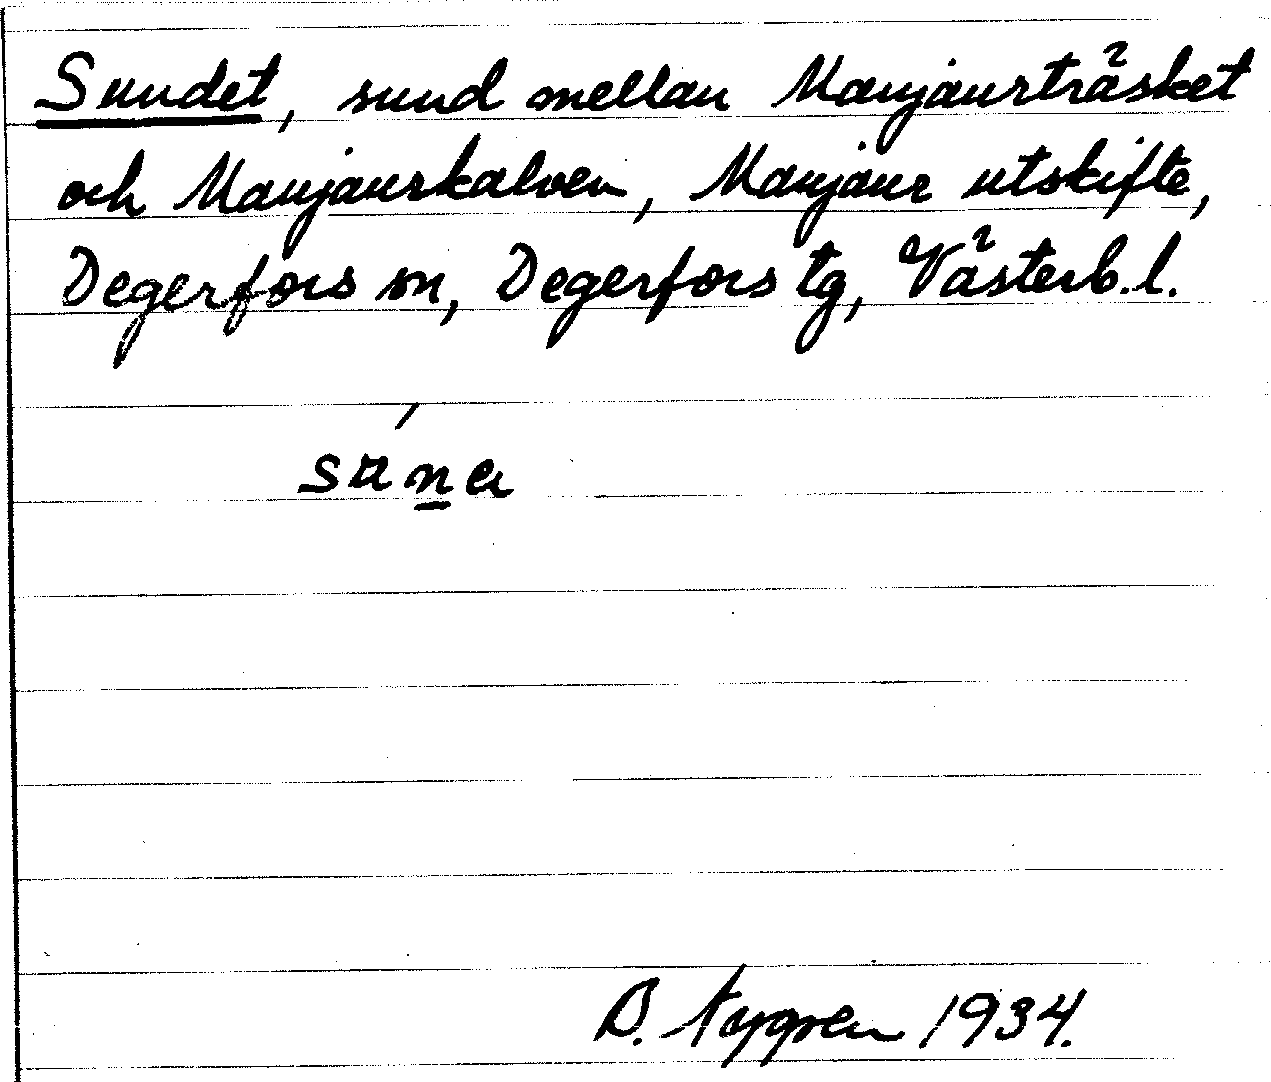 Sundet, sund mellan Manjaurträsket
och Manjaurkalven, Manjaur utskifte,
Degerfors sn, Degerfors tg, Västerb.l.
B. Nygren 1934.